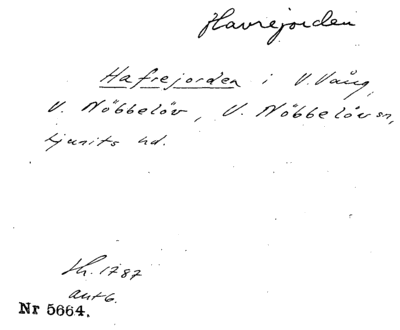 Havrejorden
Hafrejorden i V. Vång,
V. Nöbbelöv, V. Nöbbelöv sn,
Ljunits hd.
Sh. 1787
ant 6.
Nr 5664.